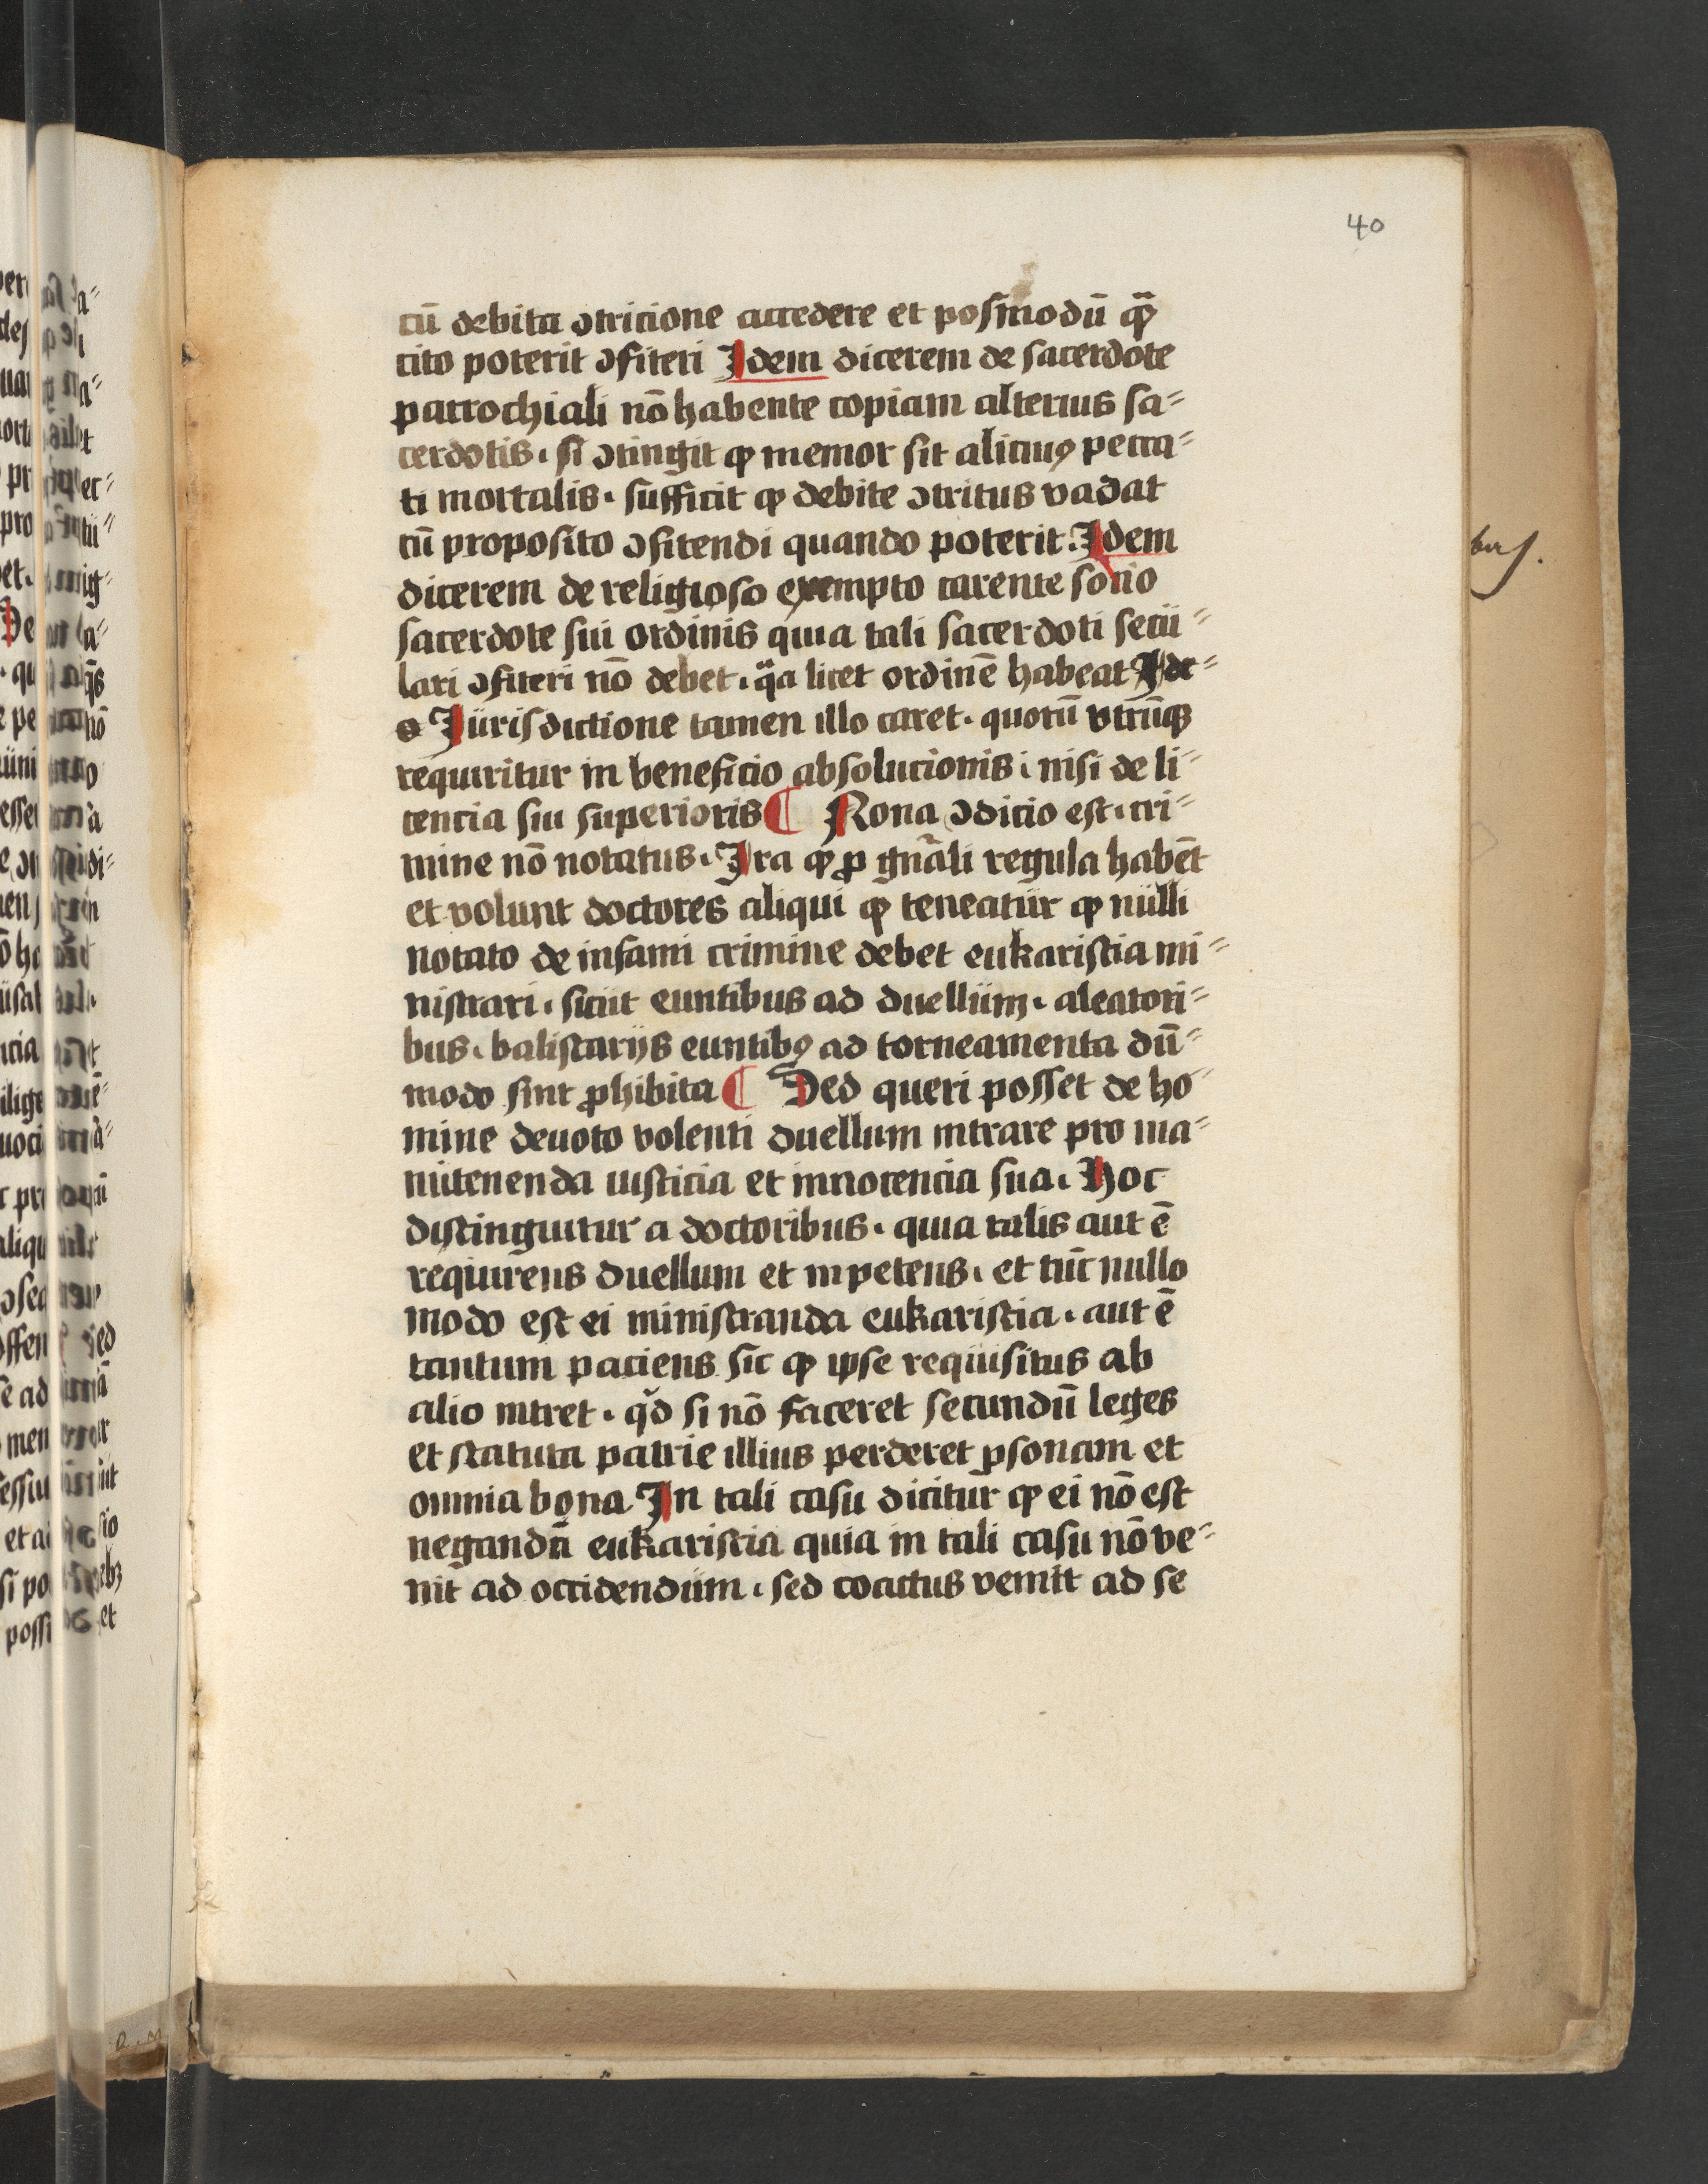 40
cū debita ɔtricione accedere et posmodū qͣ̄
cito poterit ɔfiteri Idem dicerem de sacerdote
parrochiali nō habente copiam alterius sa⸗
cerdotis. si ɔtingit ꝙ memor sit alicuiꝰ pecca⸗
ti mortalis. sufficit ꝙ debite ɔtritus vadat
cū proposito ɔfitendi quando poterit. Idem
dicerem de religioso exempto carente socio
sacerdote sui ordinis quia tali sacerdoti secu⸗
lari ɔfiteri nō debet. qͣa licet ordinē habeat
Jurisdictione tamen illo caret. quorū vtrūqꝫ
requiritur in beneficio absolucionis. nisi de li⸗
cencia sui superioris ¶ Nona ɔdicio est. cri⸗
mine nō notatus. Ita ꝙ ꝓ gn̄ali regula habēt
et volunt doctores aliqui ꝙ teneatur ꝙ nulli
notato de infami crimine debet eukaristia mi⸗
nistrari. sicut euntibus ad duellum. aleatori⸗
bus. balistarijs euntibꝰ ad torneamenta dū⸗
modo sint ꝓhibita ¶ Sed queri posset de ho⸗
mine deuoto volenti duellum intrare pro ma⸗
nutenenda iusticia et innocencia sua. Hoc
distinguitur a doctoribus. quia talis aut ē
requirens duellum et inpetens. et tūc nullo
modo est ei ministranda eukaristia. aut ē
tantum paciens sic ꝙ ipse requisitus ab
alio intret. qd̓ si nō faceret secundū leges
et statuta patrie illius perderet ꝑsonam et
omnia bona In tali casu dicitur ꝙ ei nō est
negandā eukaristia quia in tali casu nō ve⸗
nit ad occidendum. sed coactus venit ad se